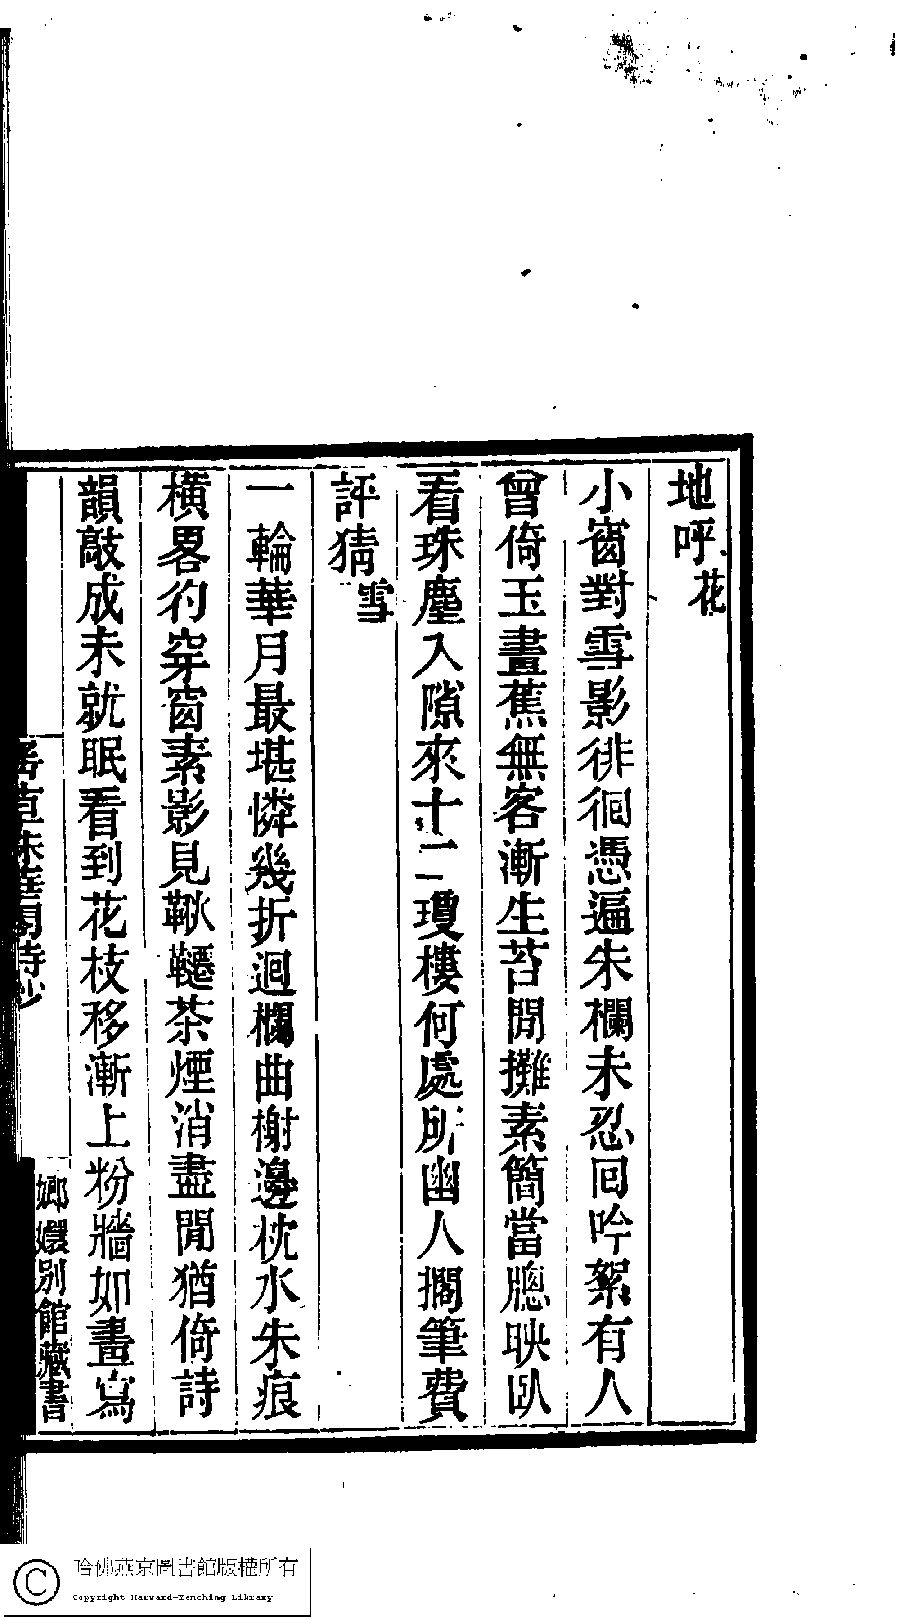 地呼花
小窗對雪影徘徊憑遍朱欄未忍回吟絮有人
曾倚玉畫蕉無客漸生苔閒攤素簡當牕映臥
看珠塵入隙來十二瓊樓何處所幽人擱筆費
評猜雪
一輪華月最堪憐幾折迴欄曲榭邊枕水朱痕
橫畧彴穿窗素影見鞦韆茶煙消盡閒猶倚詩
韻敲成未就眠看到花枝移漸上粉牆如畫寫
詩鈔
嫏嬛別館藏書
哈佛燕京圖書館版權所有
Copyright Harvard-Yenching Library